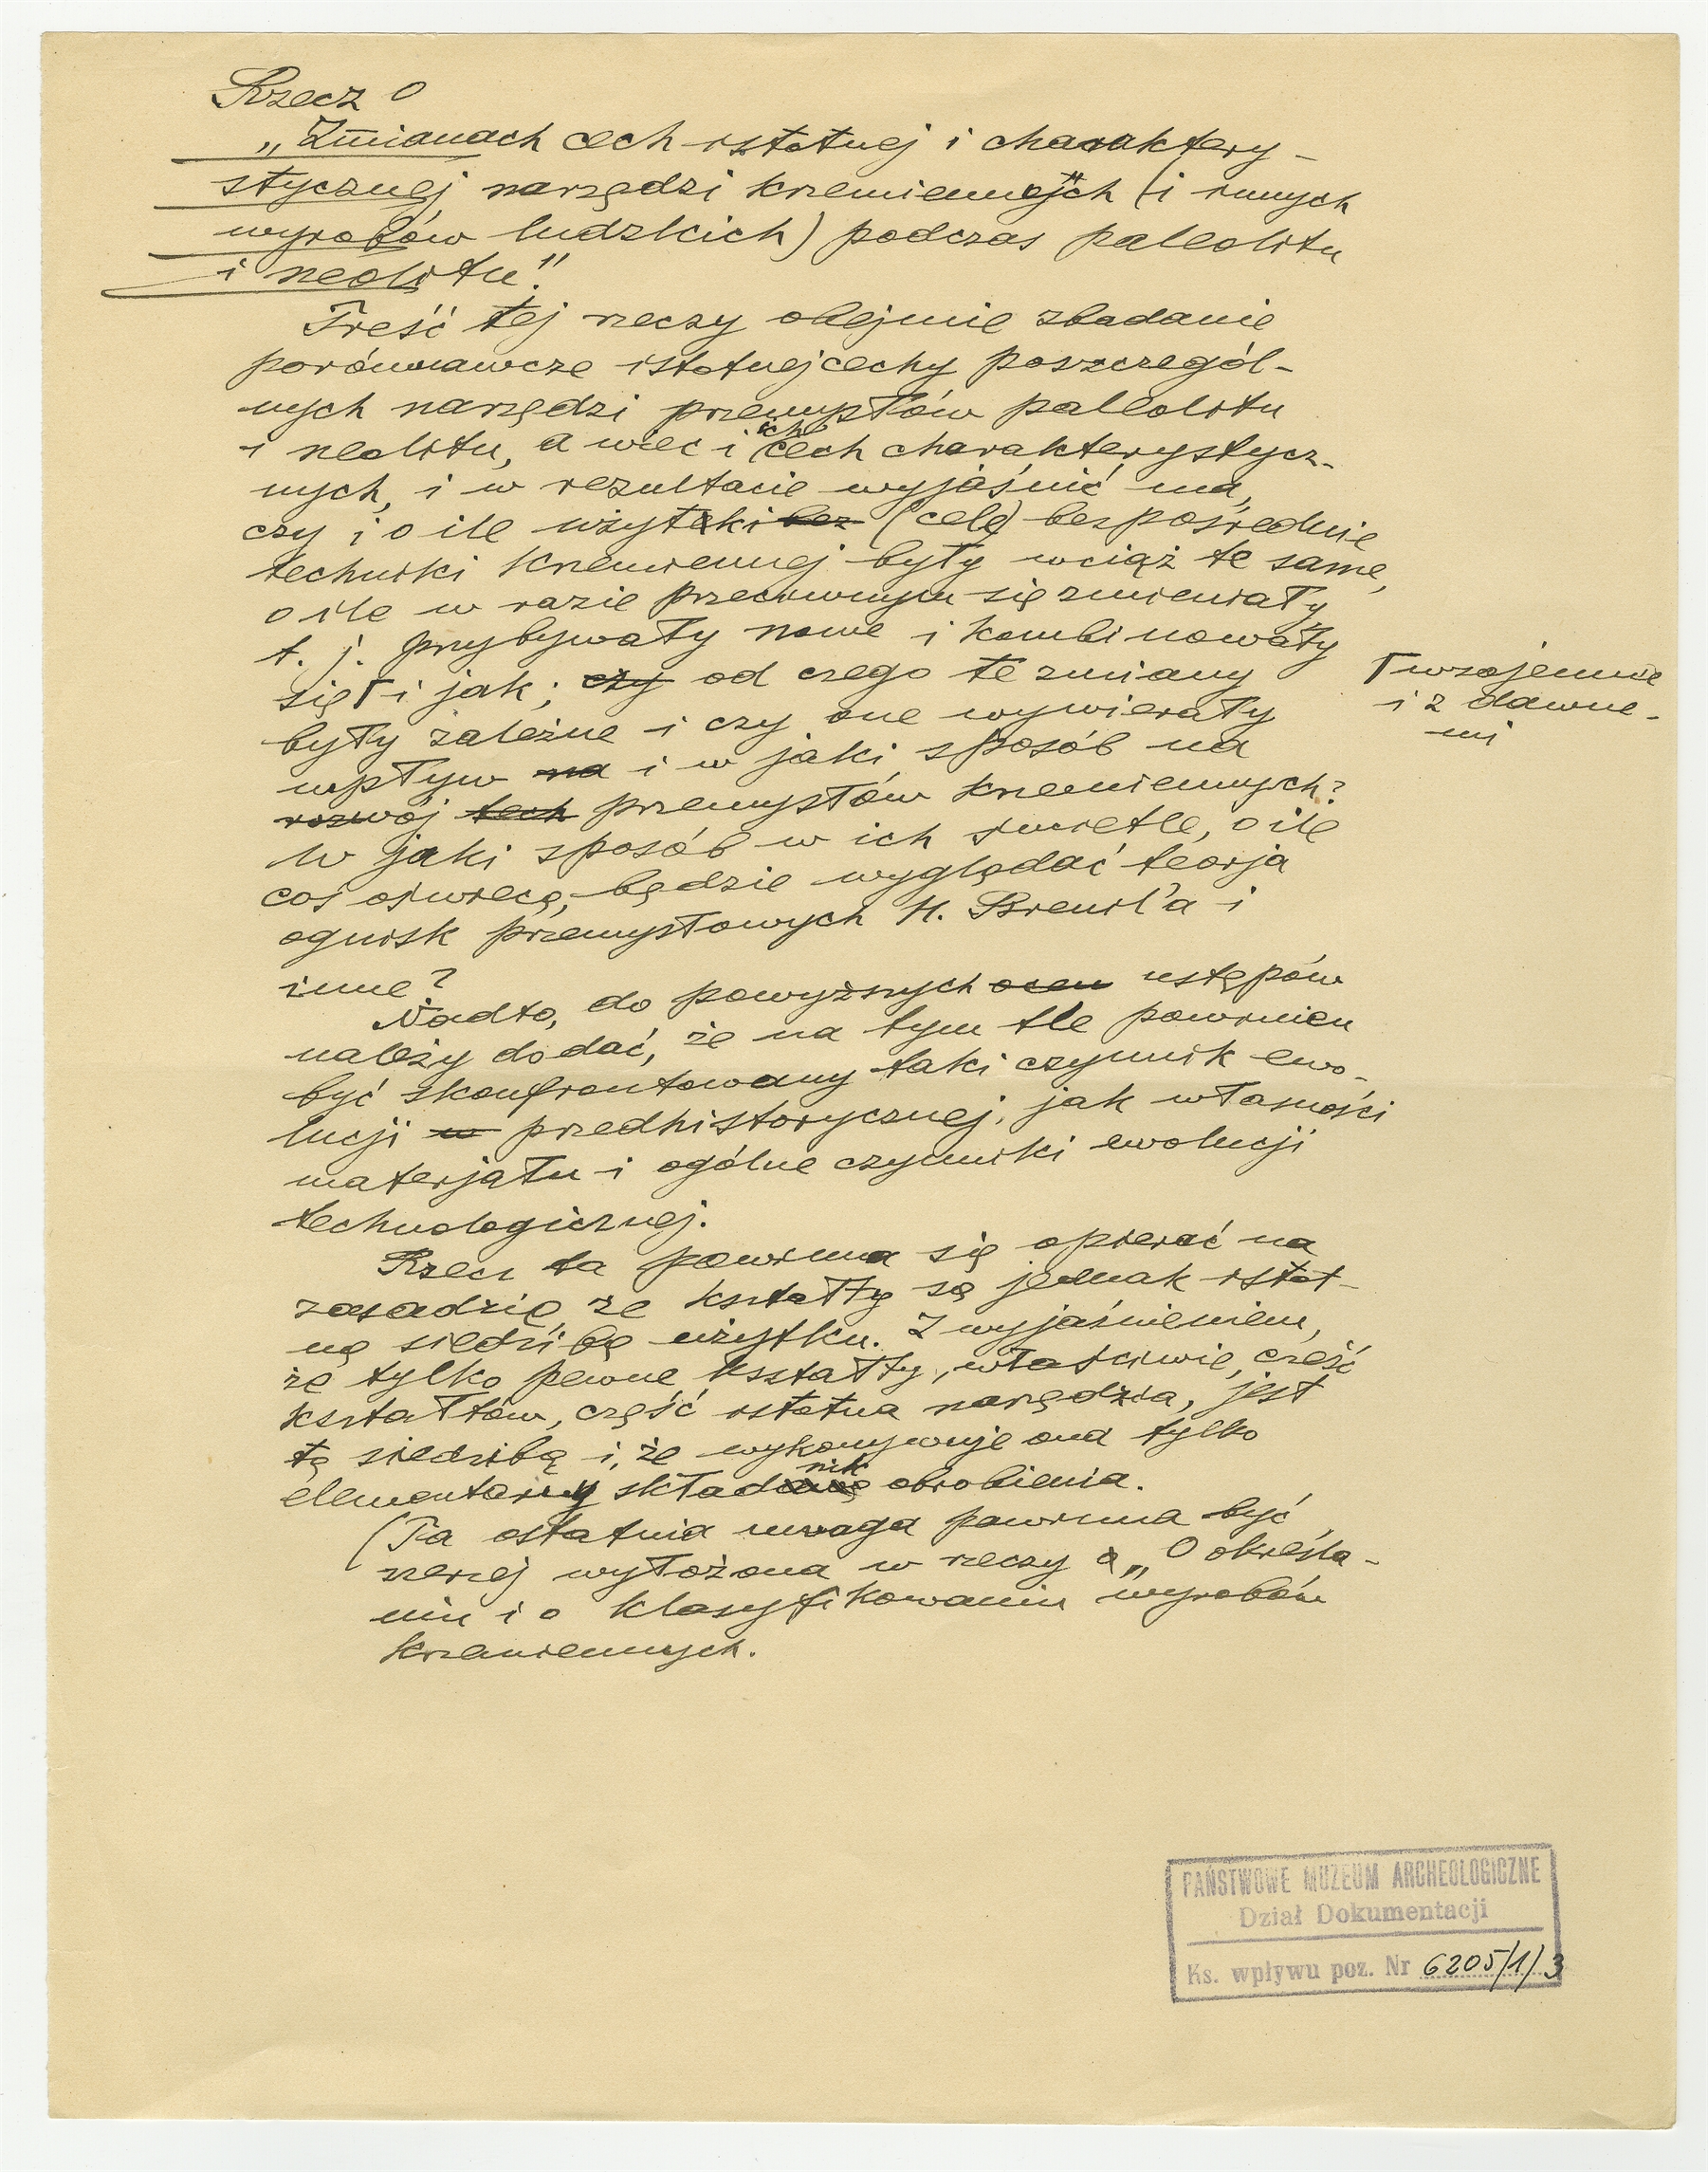 Rzecz o
„Zmianach cech istotnej i charaktery-
stycznej narzędzi krzemiennych (i innych
wyrobów ludzkich) podczas paleolitu
i neolitu".
Treść tej rzeczy obejmie zbadanie
porównawcze istotnej cechy poszczegól-
nych narzędzi przemysłów paleolitu
i neolitu, a więc i ich cech charakterystycz-
nych, i w rezultacie wyjaśnić ma,
czy i o ile użytki bez (cele) bezpośrednie
techniki krzemiennej były wciąż te same,
o ile w razie przeciwnym się zmieniały,
t. j. przybywały nowe i kombinowały
się Γ i jak; czy od czego te zmiany
Γ wzajemnie
i z dawne-
mi
były zależne i czy one wywierały
wpływ na i w jaki sposób na
rozwój tech przemysłów krzemiennych?
W jaki sposób w ich świetle, o ile
coś oświecą, będzie wyglądać teorja
ognisk przemysłowych H. Breuil'a i
inne?
Nadto, do powyższych ocen ustępów
należy dodać, że na tym tle powinien
być skonfrontowany taki czynnik ewo-
lucji w przedhistorycznej, jak własności
materjału i ogólne czynniki ewolucji
technologicznej.
Rzecz ta powinna się opierać na
zasadzie, że kształty są jednak istot-
ną siedzibą użytku. Z wyjaśnieniem,
że tylko pewne kształty, właściwie, część
kształtów, część istotna narzędzia, jest
tą siedzibą i, że wykonywuje ona tylko
elementarny składnik obrobienia.
(Ta ostatnia uwaga powinna być
szerzej wyłożona w rzeczy „O określa-
niu i o klasyfikowaniu wyrobów
krzemiennych.
PAŃSTWOWE MUZEUM ARCHEOLOGICZNE
Dział Dokumentacji
Ks. wpływu poz. Nr 6205/1/3